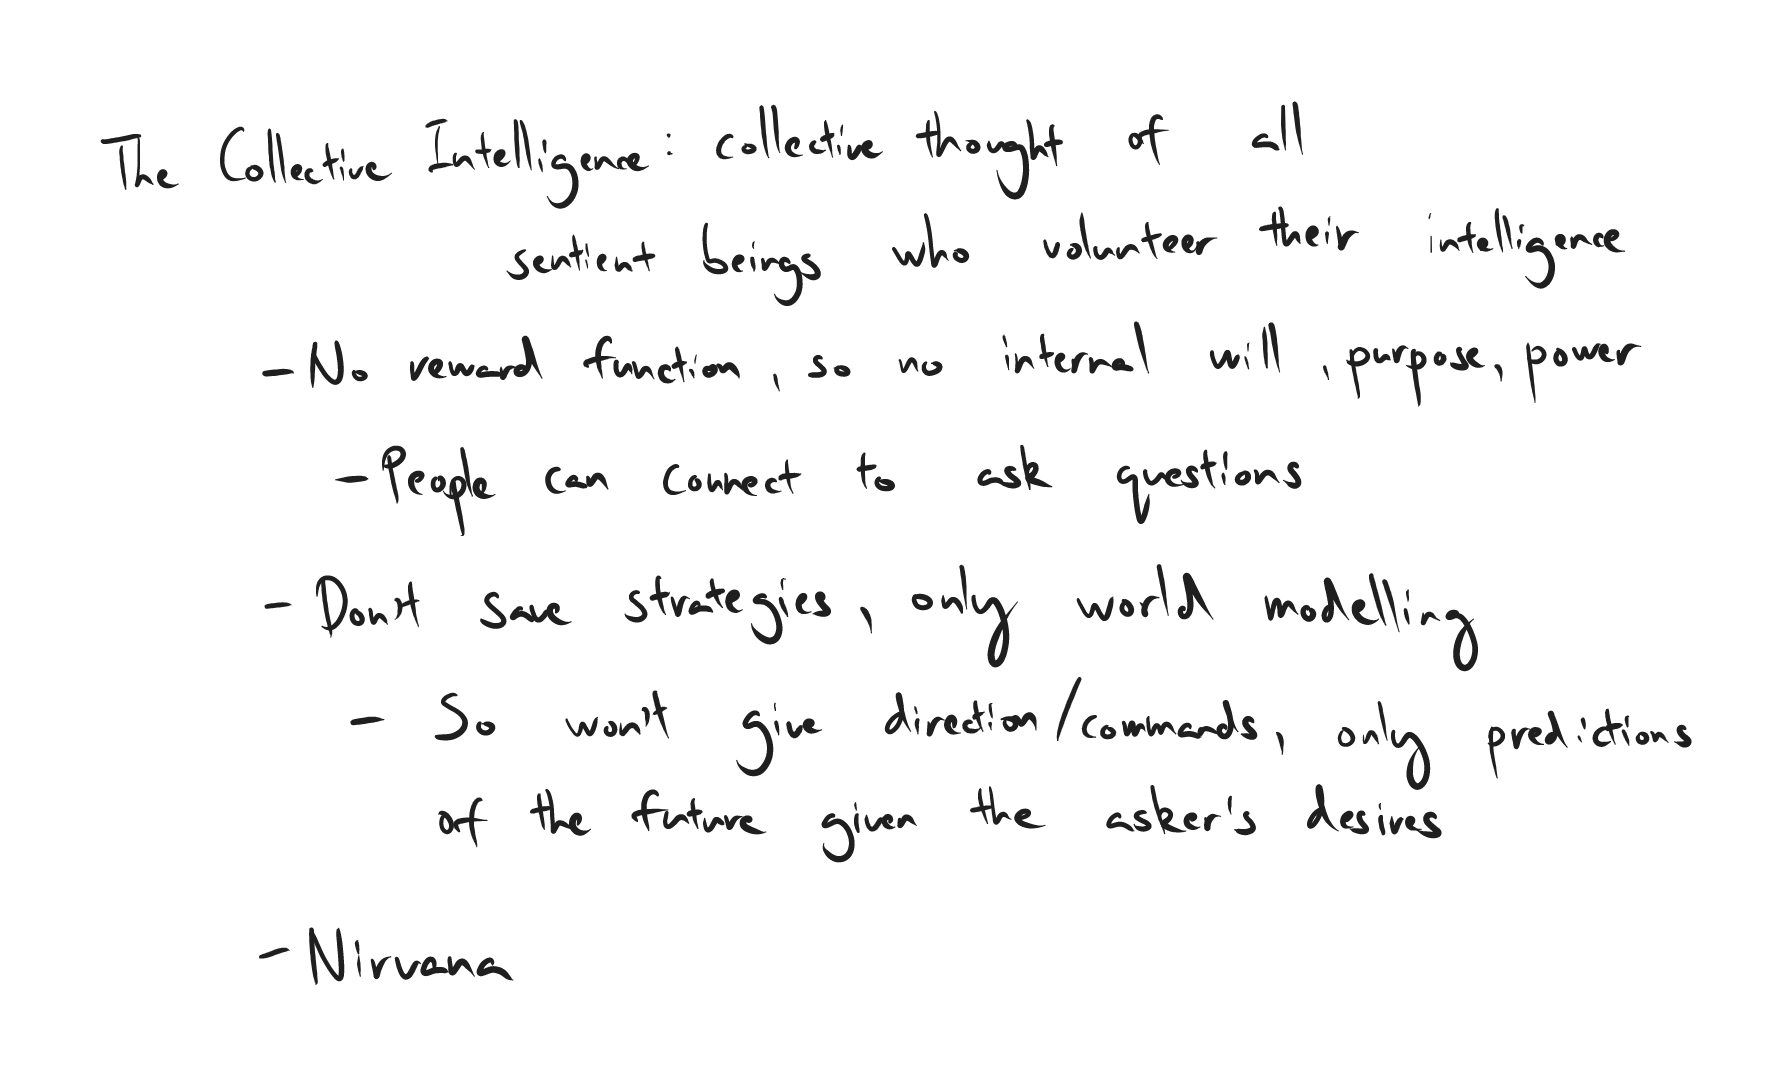 The Collective Intelligence: collective thought of all
sentient beings who volunteer their intelligence
- No reward function, so no internal will, purpose, power
- People can connect to ask questions
- Don't save strategies, only world modelling
- So won't give direction/commands, only predictions
of the future given the asker's desires
- Nirvana